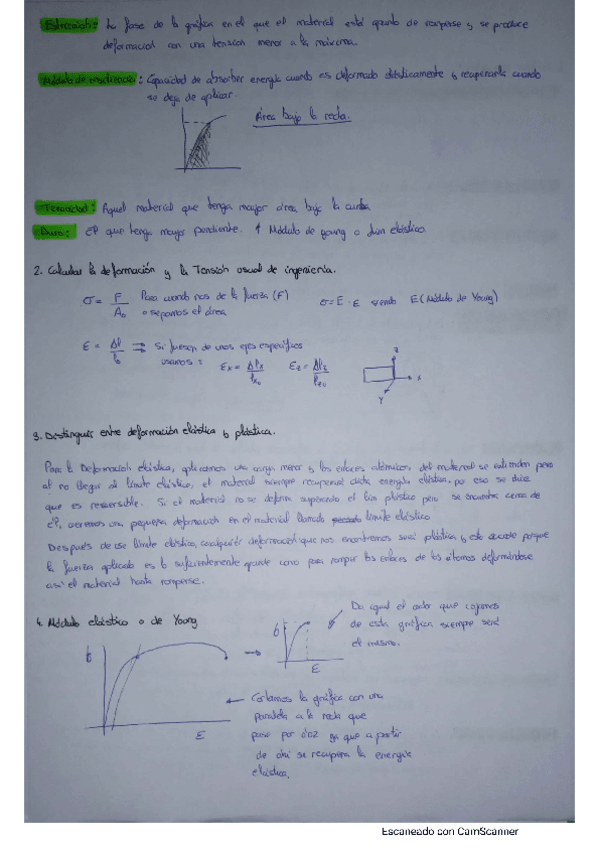 Estricción: La fase de la gráfica en el que el material está apunto de romperse y se produce
deformación con una tension menor a la máxima.
Módulo de resiliencia: Capacidad de absorber energía cuando es deformado elásticamente y recuperarla cuando
se deja de aplicar
Área bajo la recta.
Tenacidad: Aquel material que tenga mayor área bajo la curva
Duro: El que tenga mayor pendiente. ↑ Módulo de young o elástico
2. Calcular la deformación y la Tensión usual de ingeniería.
σ = F / A₀ Para cuando nos de la fuerza (F) o sepamos el área
σ = E · ε siendo E (Módulo de Young)
ε = Δl / l₀ ⇒ Si fuesen de unos ejes específicos
usamos: εx = Δlx / lx₀ εz = Δlz / lz₀
z
x
Y
3. Distinguir entre deformación elástica y plástica.
Para la Deformación elástica, aplicamos una carga menor y los enlaces atómicos del material se extienden pero
al no llegar al límite elástico, el material siempre recuperará dicha energía elástica, por eso se dice
que es reversible. Si el material no se deforma superando el plástico pero se encuentra cerca de
él, veremos una pequeña deformación en el material llamada límite elástico.
Después de ese límite elástico, cualquier deformación que nos encontremos será plástica y esto sucede porque
la fuerza aplicada es lo suficientemente grande como para romper los enlaces de los átomos deformándose
así el material hasta romperse.
4. Módulo elástico o de Young
σ
ε
σ
ε
Da igual el valor que cojamos
de esta gráfica siempre será
el mismo.
Cortamos la gráfica con una
paralela a la recta que
pase por 0'02 ya que a partir
de ahí se recupera la energía
elástica.
Escaneado con CamScanner